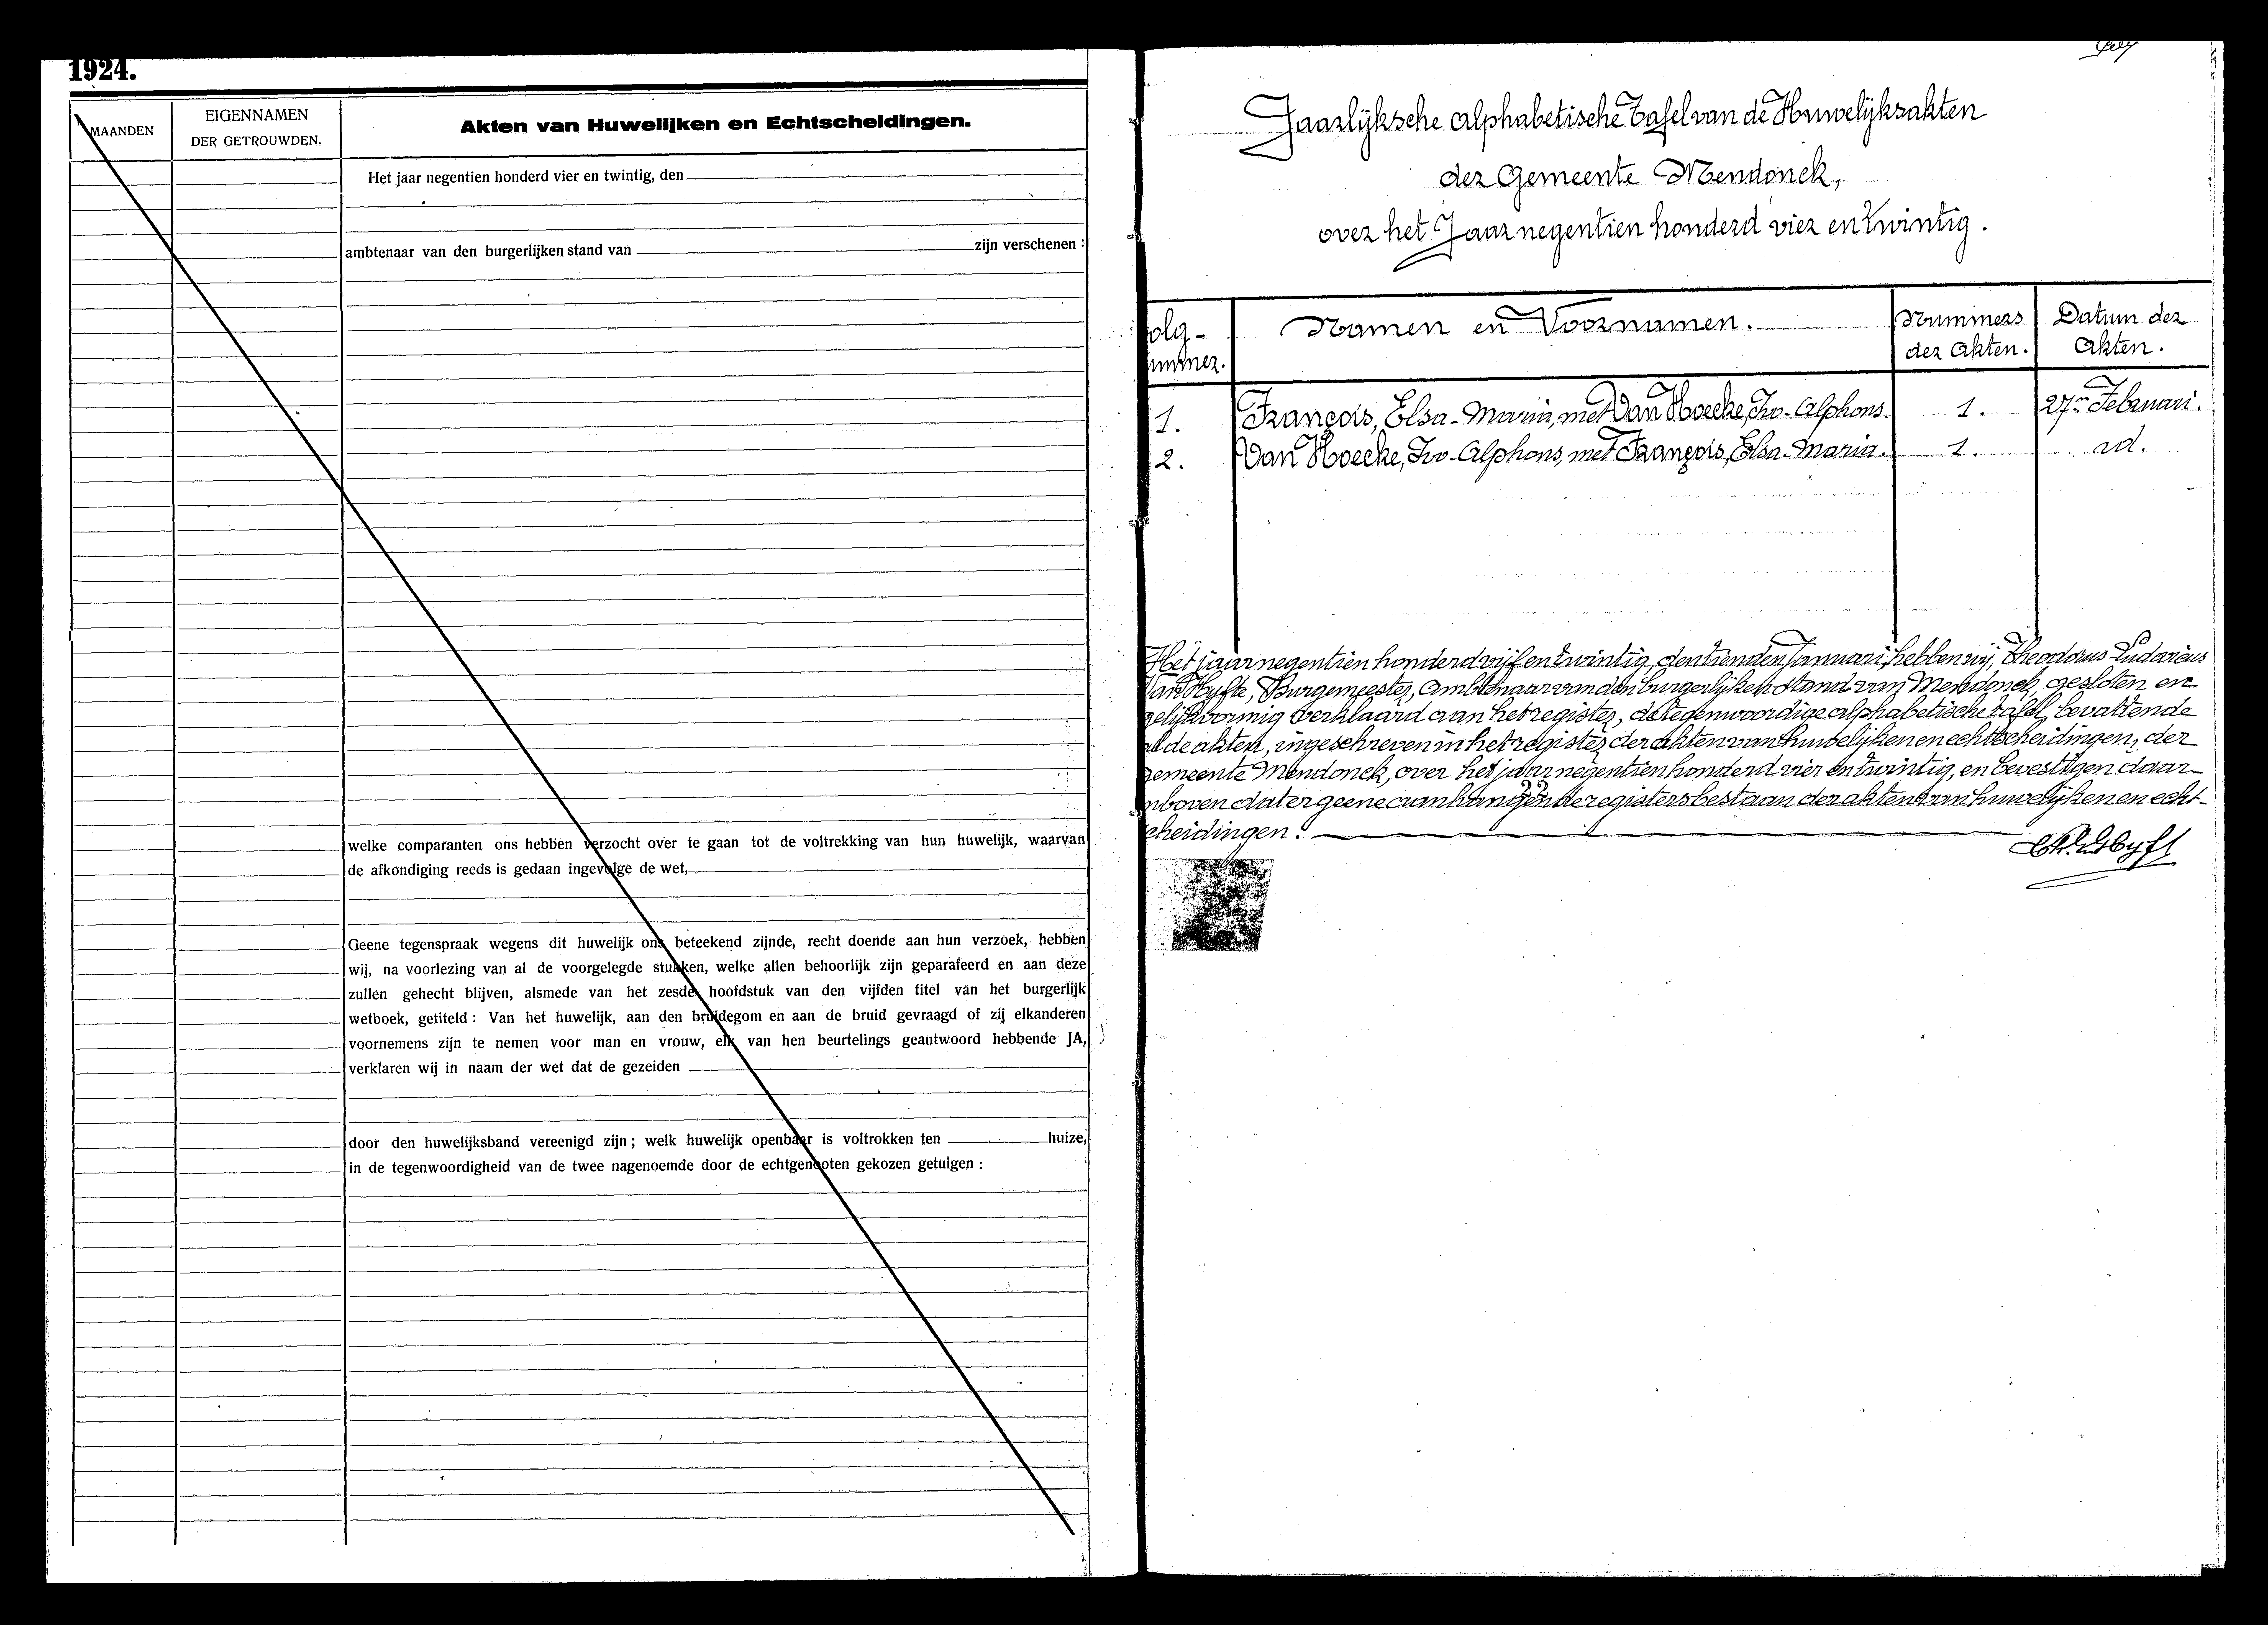 1924.
MAANDEN
EIGENNAMEN
DER GETROUWDEN.
Akten van Huwelijken en Echtscheidingen.
Het jaar negentien honderd vier en twintig, den
ambtenaar van den burgerlijken stand van zijn verschenen :
welke comparanten ons hebben verzocht over te gaan tot de voltrekking van hun huwelijk, waarvan
de afkondiging reeds is gedaan ingevolge de wet,
Geene tegenspraak wegens dit huwelijk ons beteekend zijnde, recht doende aan hun verzoek, hebben
wij, na voorlezing van al de voorgelegde stukken, welke allen behoorlijk zijn geparafeerd en aan deze
zullen gehecht blijven, alsmede van het zesde hoofdstuk van den vijfden titel van het burgerlijk
wetboek, getiteld : Van het huwelijk, aan den bruidegom en aan de bruid gevraagd of zij elkanderen
voornemens zijn te nemen voor man en vrouw, elk van hen beurtelings geantwoord hebbende JA,
verklaren wij in naam der wet dat de gezeiden
door den huwelijksband vereenigd zijn ; welk huwelijk openbaar is voltrokken ten huize,
in de tegenwoordigheid van de twee nagenoemde door de echtgenooten gekozen getuigen :
Jaarlijksche alphabetische Tafel van de Huwelijksakten
der Gemeente Mendonck,
over het Jaar negentien honderd vier en twintig.
olg-
ummer.
Namen en Voornamen.
Nummers
der Akten.
Datum der
Akten.
1. François, Elsa-Maria, met Van Hoecke, Ivo-Alphons. 1. 27n Februari.
2. Van Hoecke, Ivo-Alphons, met François, Elsa-Maria. 1. id.
Het jaar negentien honderd vijf en twintig, den tienden Januari, hebben wij, Theodorus-Ludovicus
Van Hyfte, Burgemeester, Ambtenaar van den burgerlijken stand van Mendonck, gesloten en
gelijkvormig verklaard aan het register, de tegenwoordige alphabetische tafel, bevattende
al de akten, ingeschreven in het register der akten van huwelijken en echtscheidingen, der
gemeente Mendonck, over het jaar negentien honderd vier en twintig, en bevestigen daar-
nboven dat er geene aanhangende registers bestaan der akten van huwelijken en echt-
cheidingen.